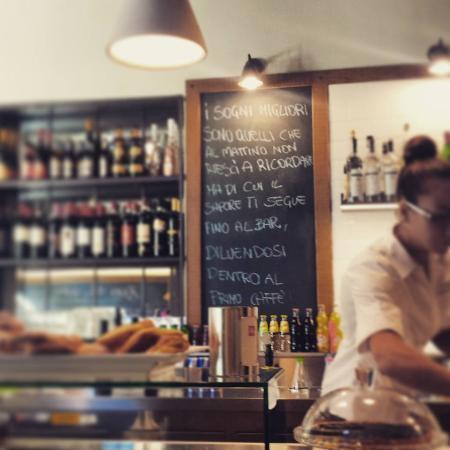 I SOGNI MIGLIORI
SONO QUELLI CHE
AL MATTINO NON
RIESCI A RICORDARE
MA DI CUI IL
SAPORE TI SEGUE
FINO AL BAR,
DILUENDOSI
DENTRO AL
PRIMO CAFFÈ